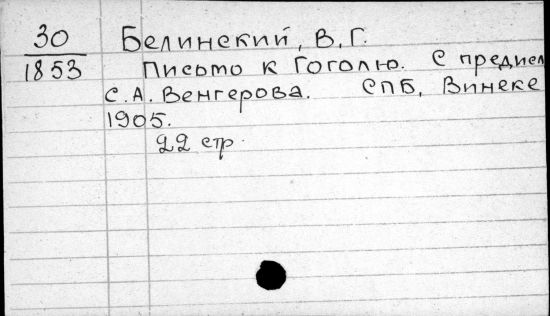 30 Белинский, В. Г.
1853 Письмо к Гоголю. С предисл
С. А. Венгерова. СПБ, Винеке
1905.
22 стр.